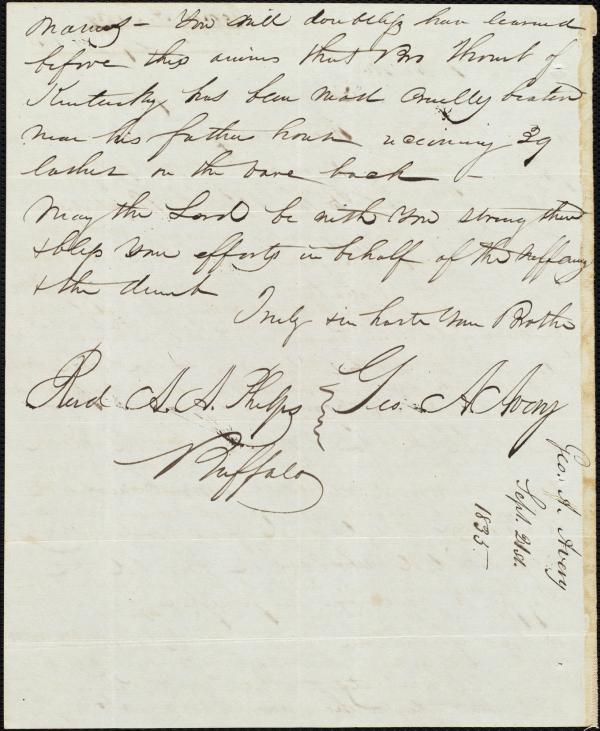 You will doubtless have learned
before this arrives that Bro Thome of
Kentucky has been most cruelly beaten
near his father house receiving 39
lashes on the bare back –
May the Lord be with you strengthen
& bless your efforts in behalf of the suffering
& the dumb
Truly & in haste your Brother
Revd A. A. Phelps
Geo. A. Avery
Buffalo
Geo. A. Avery
Sept. 21st.
1835.